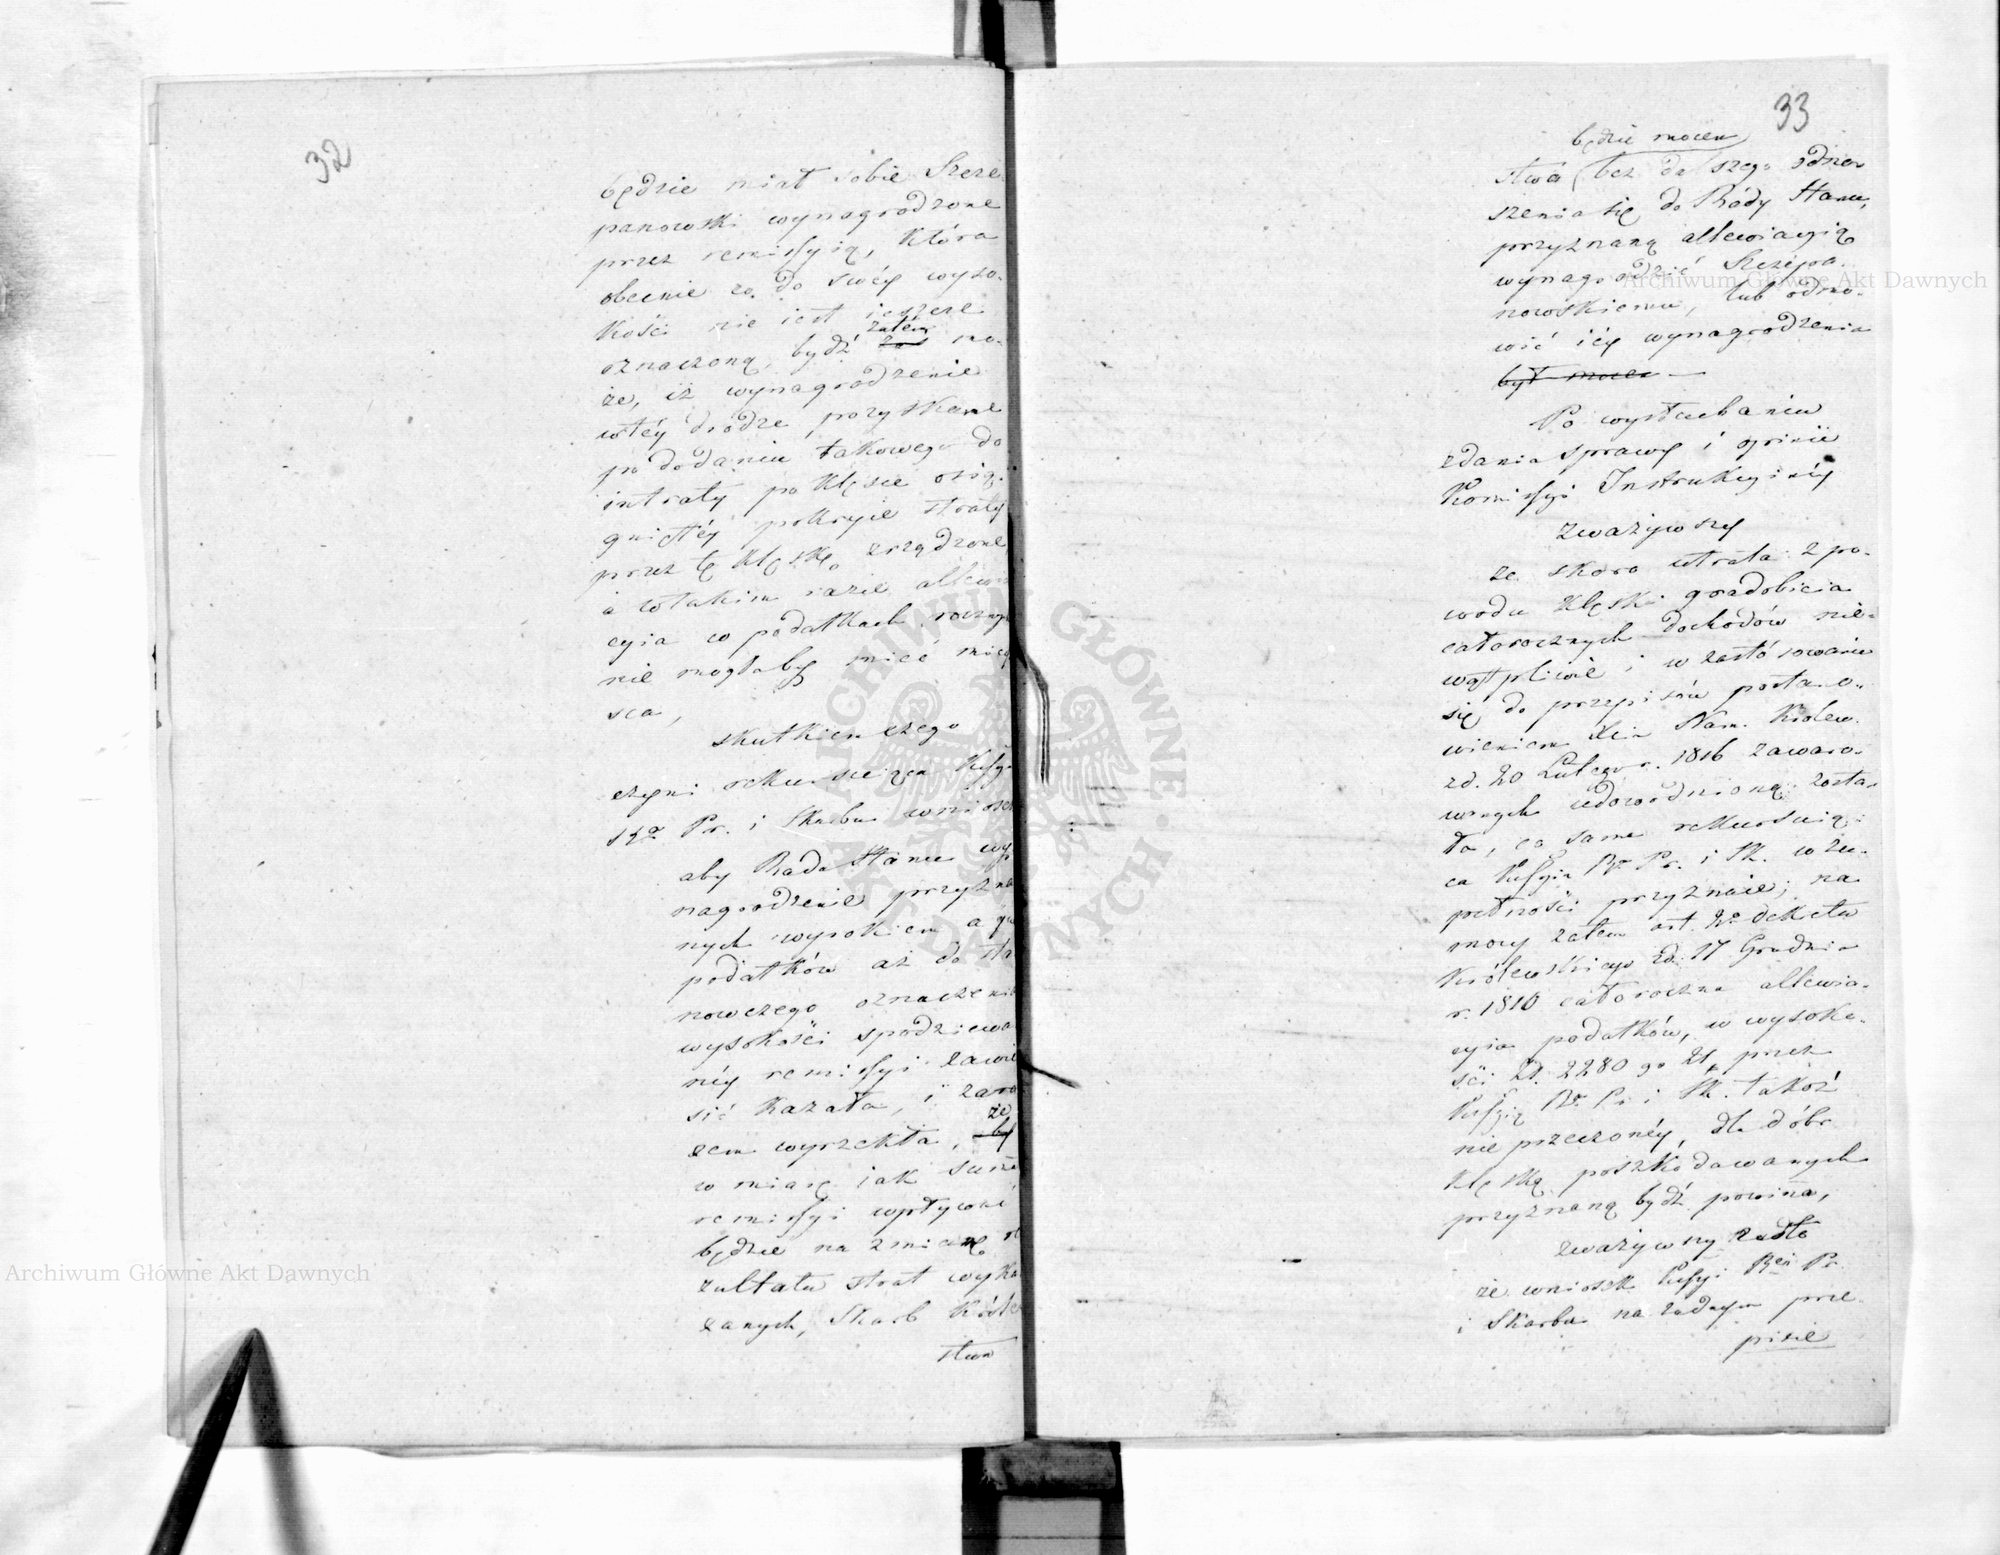 32
będzie miał sobie Szcze
panowski wynagrodzone
przez remissyią, która
obecnie co do swéy wyso-
kości nie iest ieszcze
oznaczoną, bydź zatem mo-
że, iż wynagrodzenie
w téy drodze pozyskane
po dodaniu takowego do
intraty po klęsce osią-
gniętéy pokryie straty
przez tę klęskę zrządzone
a w takim razie allewia
cyia w podatkach roczny
nie mogłaby mieć miey
sca,
skutkiem czego
czyni rekursuiąca Kssya
Pr. i Skarbu wniosek
aby Rada Stanu wy
nagrodzenie przyzna
nych wysokiem
podatków aż do sta
nowczego oznaczenia
wysokości spodziewa
néy remissyi zawie
sić kazała, i zara
zem wyrzekła, że
w miarę iak
remissyi wpłynie
będzie na zmianę re
zultatu strat wyka
zanych, Skarb Króle
stwa
33
będzie mocen
stwa bez dalszego odno-
szenia się do Rady Stanu,
przyznaną allewiacyią
wynagrodzić Szczépa-
nowskiemu, lub odmó-
wić iéy wynagrodzenia
był mocen
Po wysłuchaniu
zdania sprawy i opinii
Komissyi Instrukcyinéy
zważywszy
że skoro utrata z po-
wodu klęski gradobicia
całorocznych dochodów nie-
wątpliwie i w zastósowaniu
się do przepisów postano-
wieniem Xcia Nam. Królew.
z d. 20 Lutego r. 1816 zawaro-
wanych udowodnioną zosta-
ła, co sama rekursuią-
ca Kssyia Pr. i Sk. w zu-
pełności przyznaie; na
mocy zatem art. 2o dekretu
Królewskiego z d. 17 Grudnia
r. 1810 całoroczna allewia-
cyia podatków, w wysoko-
ści zł. 2280 gr 21 przez
Kssyią Pr. i Sk. takoż
nie przeczonéy, dla dóbr
klęską poszkodowanych
przyznaną bydź powinna,
zważywszy zaś
że wniosek Kssyi Pr.
i Skarbu na żadnym prze-
pisie